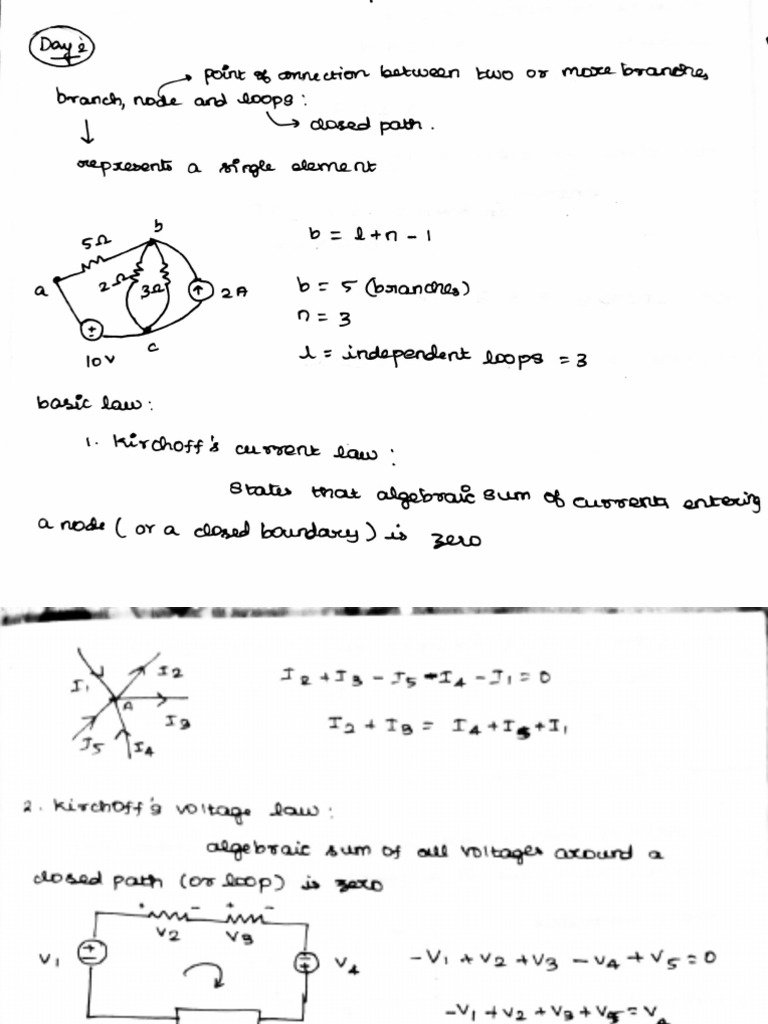 Day 2
point of connection between two or more branches
branch, node and loops :
closed path .
represents a single element
b
5Ω
a
2Ω
3Ω
2A
10V
c
b = l + n - 1
b = 5 (branches)
n = 3
l = independent loops = 3
basic law :
1. Kirchoff's current law :
States that algebraic sum of currents entering
a node ( or a closed boundary ) is zero
I1
I2
A
I3
I5
I4
I2 + I3 - I5 - I4 - I1 = 0
I2 + I3 = I4 + I5 + I1
2. Kirchoff's voltage law :
algebraic sum of all voltages around a
closed path (or loop) is zero
+ - + -
V2 V3
V1
V4
-V1 + V2 + V3 - V4 + V5 = 0
-V1 + V2 + V3 + V5 = V4